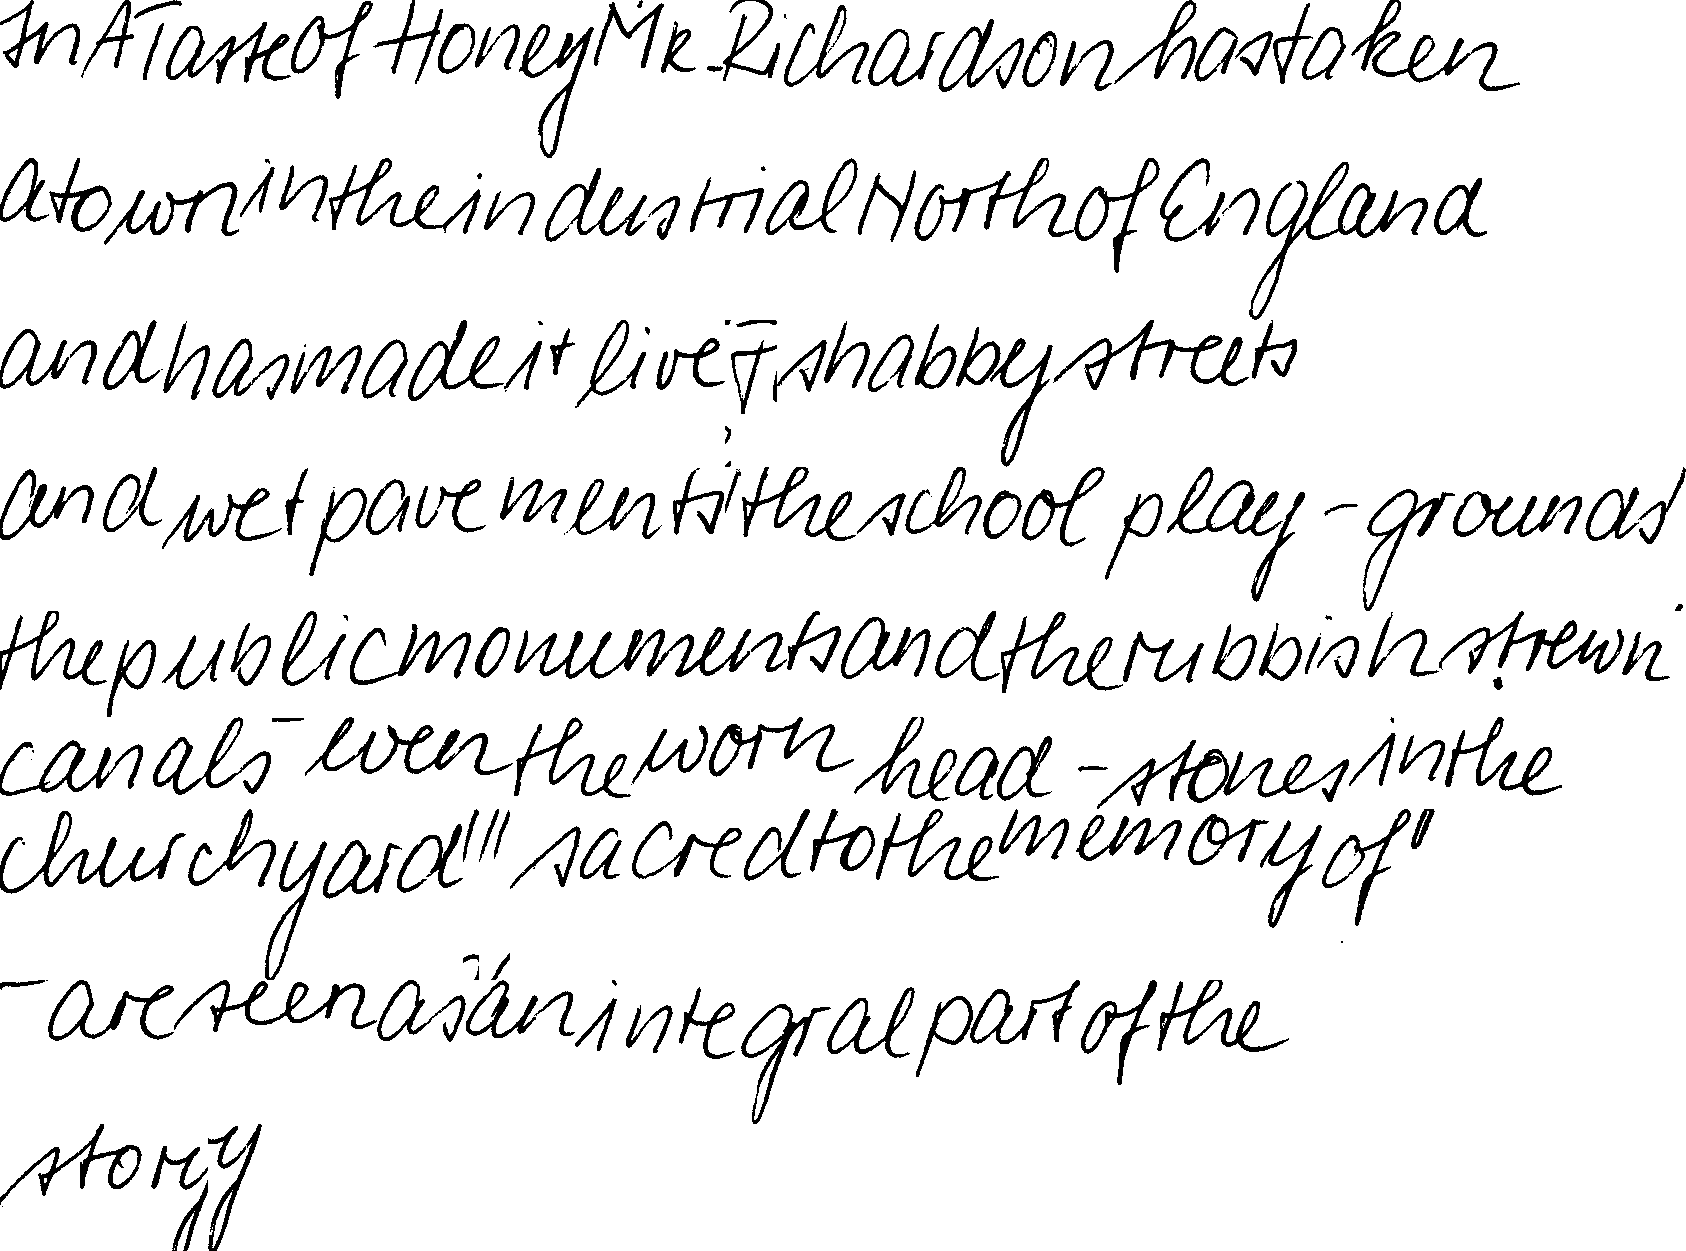 In A Taste of Honey Mr. Richardson has taken
a town in the industrial North of England
and has made it live. , shabby streets
and wet pavements, the school play-grounds
the public monuments and the rubbish strewn
canals - even the worn head-stones in the
churchyard, " sacred to the memory of "
- are seen as an integral part of the
story